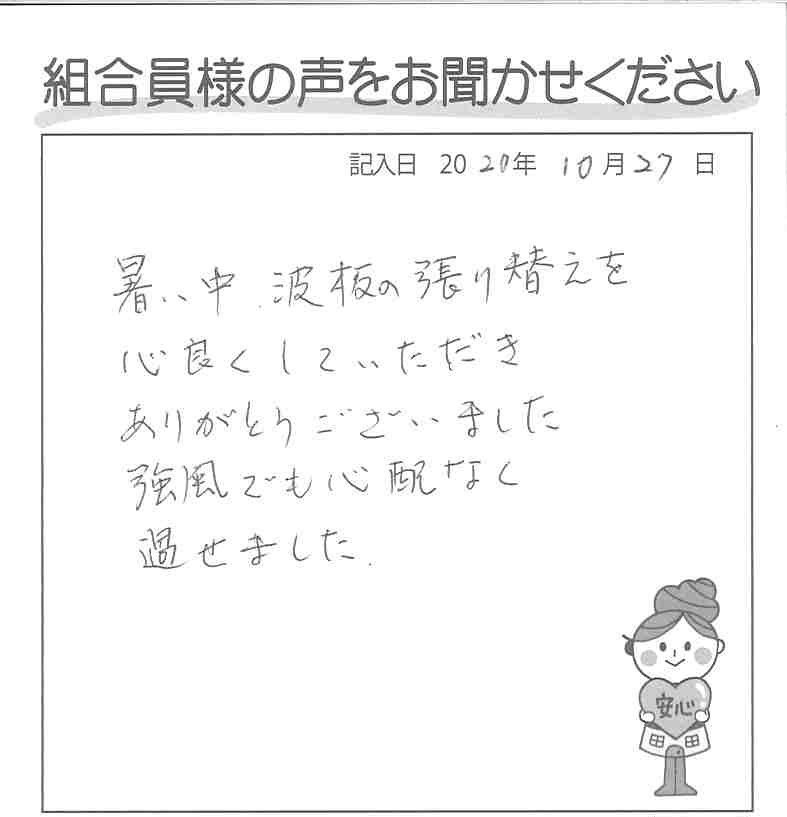 組合員様の声をお聞かせください
記入日 2020年 10月27日
暑い中、波板の張り替えを
心良くしていただき
ありがとうございました
強風でも心配なく
過せました.
安心